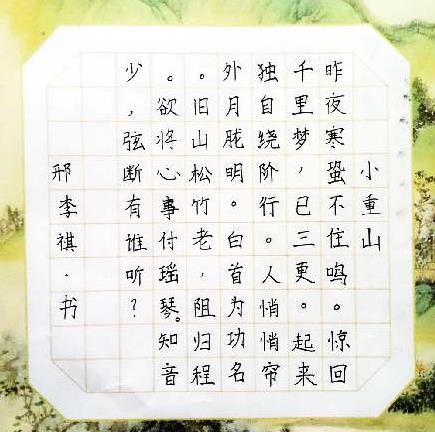 小重山
昨夜寒蛩不住鸣。惊回
千里梦，已三更。起来
独自绕阶行。人悄悄帘
外月胧明。白首为功名
。旧山松竹老，阻归程
。欲将心事付瑶琴。知音
少，弦断有谁听？
邢李祺·书